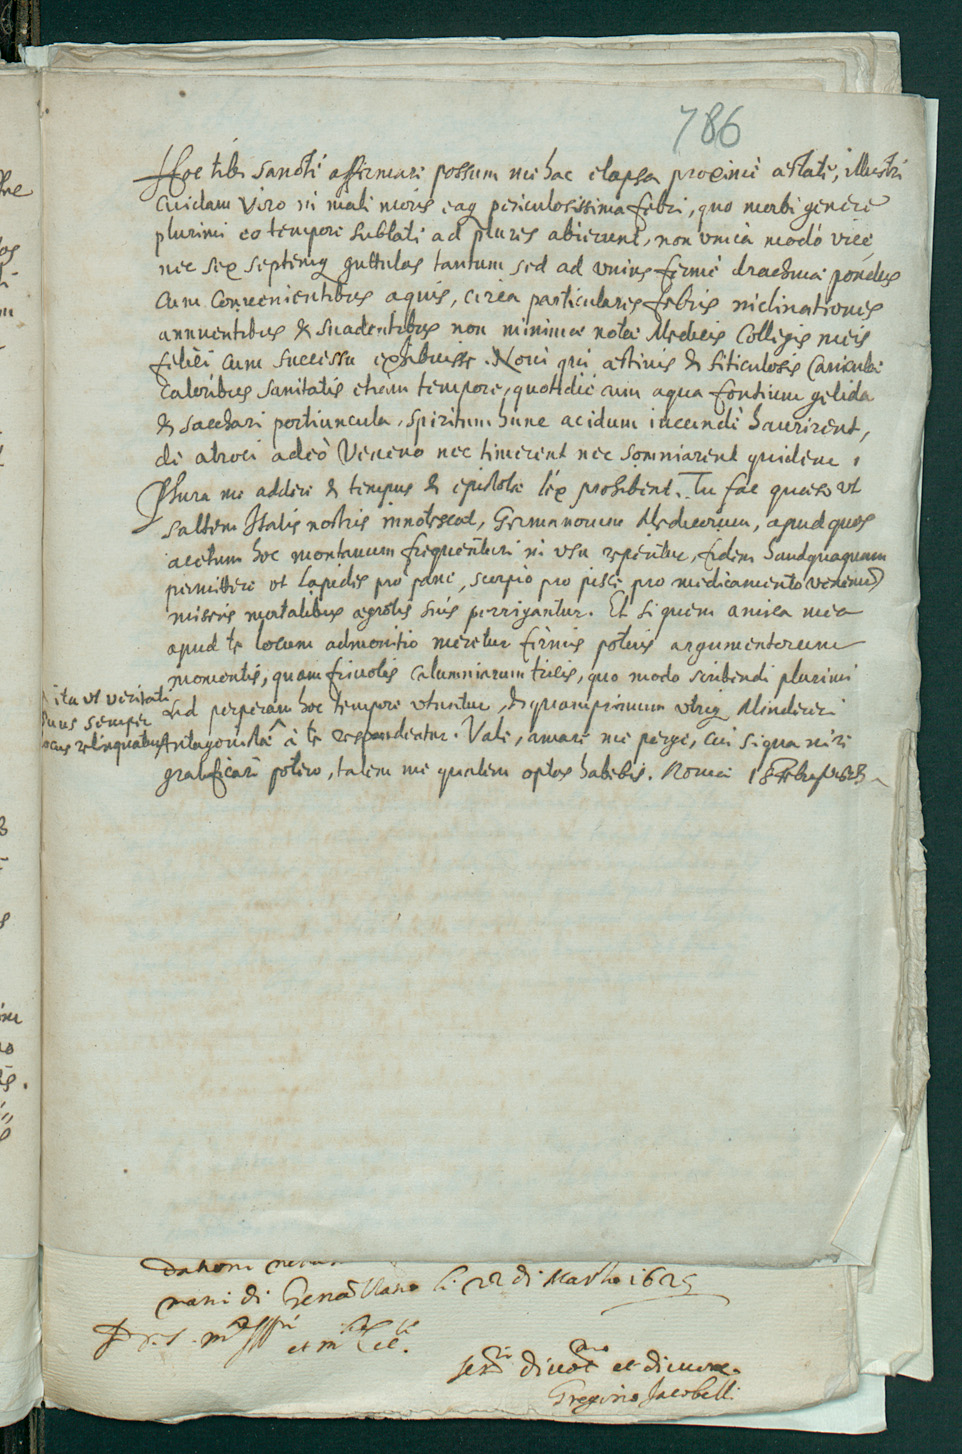 786
Hoc tibi sanctè affirmare possum me hac elapsa proximè æstate, illustri
cuidam viro in mali moris eaq periculosissima febri, quo morbi genere
plurimi eo tempore sublati ad plures abierunt, non vnica modò vice,
nec sex septemq guttulas tantum sed ad vnius fermè drachmæ pondus
cum conuenientibus aquis, circa particulares febris inclinationes
annuentibus & suadentibus non minimæ notæ Medicis Collegis meis
felici cum successu exhibuisse. Noui qui æstiuis & siticulosis Caniculæ
caloribus sanitatis etiam tempore, quotidie cum aqua fontium gelida
& sacchari portiuncula, spiritum hunc acidum iucundè haurirent,
de atroci adeò Veneno nec timerent nec somniarent quidem.
Plura me addere & tempus & epistolæ lex prohibent. Tu fac quæso vt
saltem Italis nostris innotescat, Germanorum Medicorum, apud quos
acetum hoc montanum frequenter in vsu reperitur, fidem haudquaquam
permittere vt lapides pro pane, scorpio pro pisce, pro medicamento venenum
miseris mortalibus ægrotis suis porrigantur. Et si quem amica mea
apud te locum admonitio meretur firmis potius argumentorum
momentis, quam friuolis calumniarum tricis, quo modo scribendi plurimi
sed perperam hoc tempore vtuntur, & quamprimum vtriq Mindereri
Antagonistæ ^ à te respondeatur. Vale, amare me perge, cui si qua in re
^ ita vt veritati
suus semper
locus relinquatur
gratificari potero, talem me qualem optas habebis. Romæ 18
mani di Genà
li 22 di Marzo 1625
D. V. S. m
et m
ser di et
Jacobelli